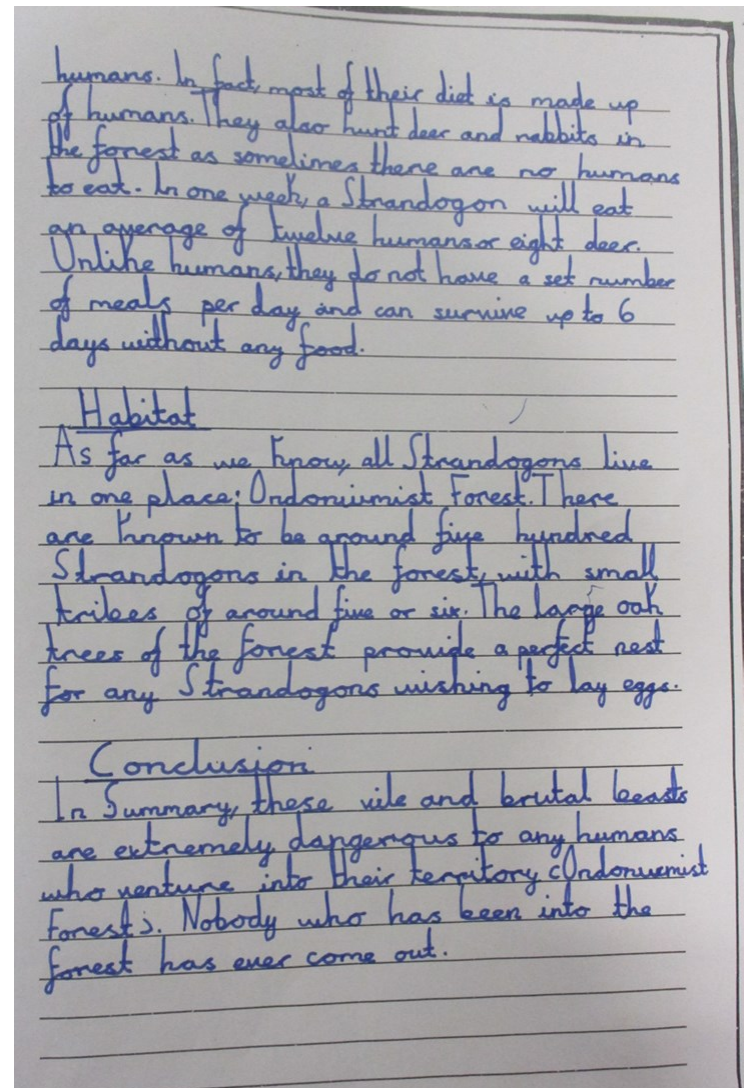 humans. In fact, most of their diet is made up
of humans. They also hunt deer and rabbits in
the forest as sometimes there are no humans
to eat. In one week, a Strandogon will eat
an average of twelve humans or eight deer.
Unlike humans, they do not have a set number
of meals per day and can survive up to 6
days without any food.
Habitat
As far as we know, all Strandogons live
in one place; Ondoniumist Forest. There
are known to be around five hundred
Strandogons in the forest, with small
tribes of around five or six. The large oak
trees of the forest provide a perfect nest
for any Strandogons wishing to lay eggs.
Conclusion
In Summary, these vile and brutal beasts
are extremely dangerous to any humans
who venture into their territory (Ondonuemist
Forest). Nobody who has been into the
forest has ever come out.